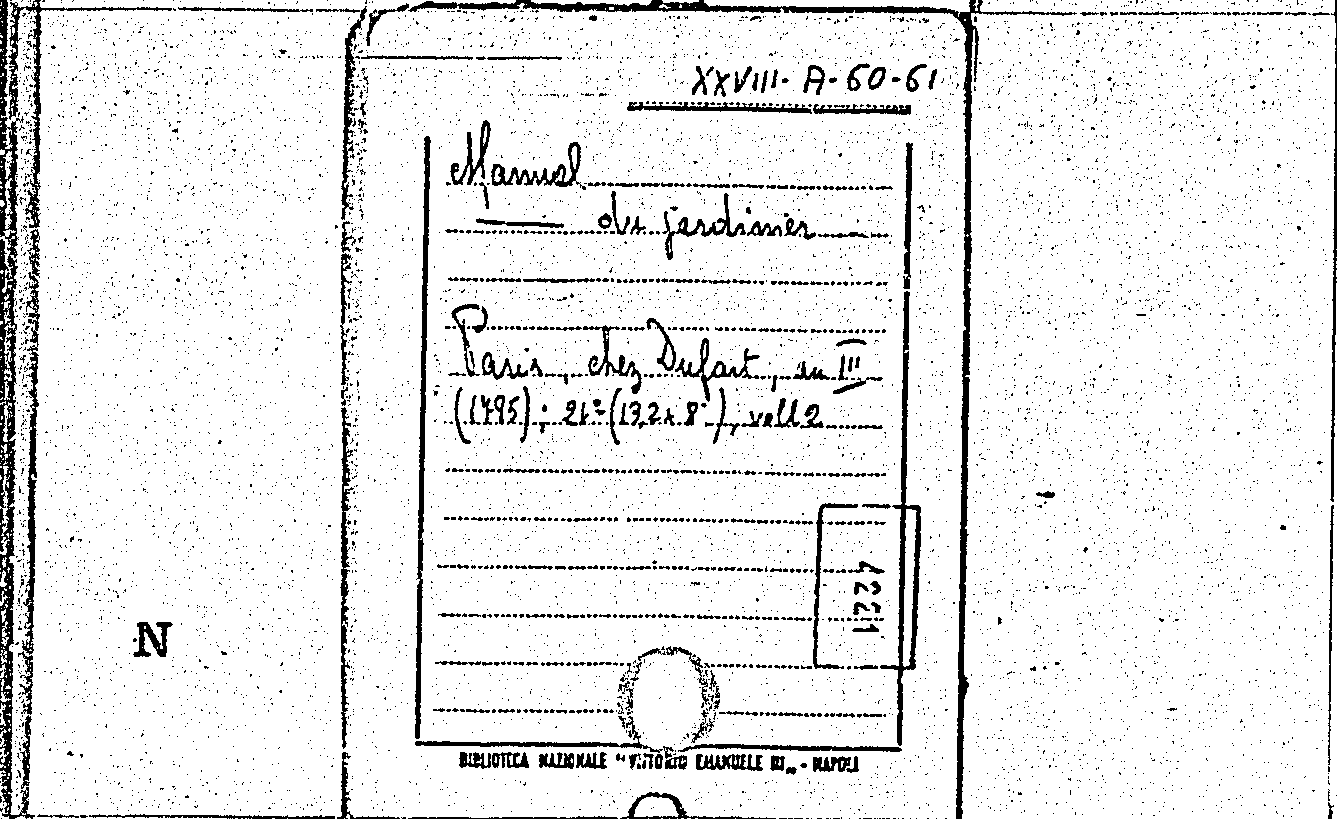 XXVIII. A. 60-61
Manuel
— du jardinier
Paris, chez Dufart, an III
(1795); 21º (13,2 x 8), voll 2
4221
N
BIBLIOTECA NAZIONALE "VITTORIO EMANUELE III" - NAPOLI